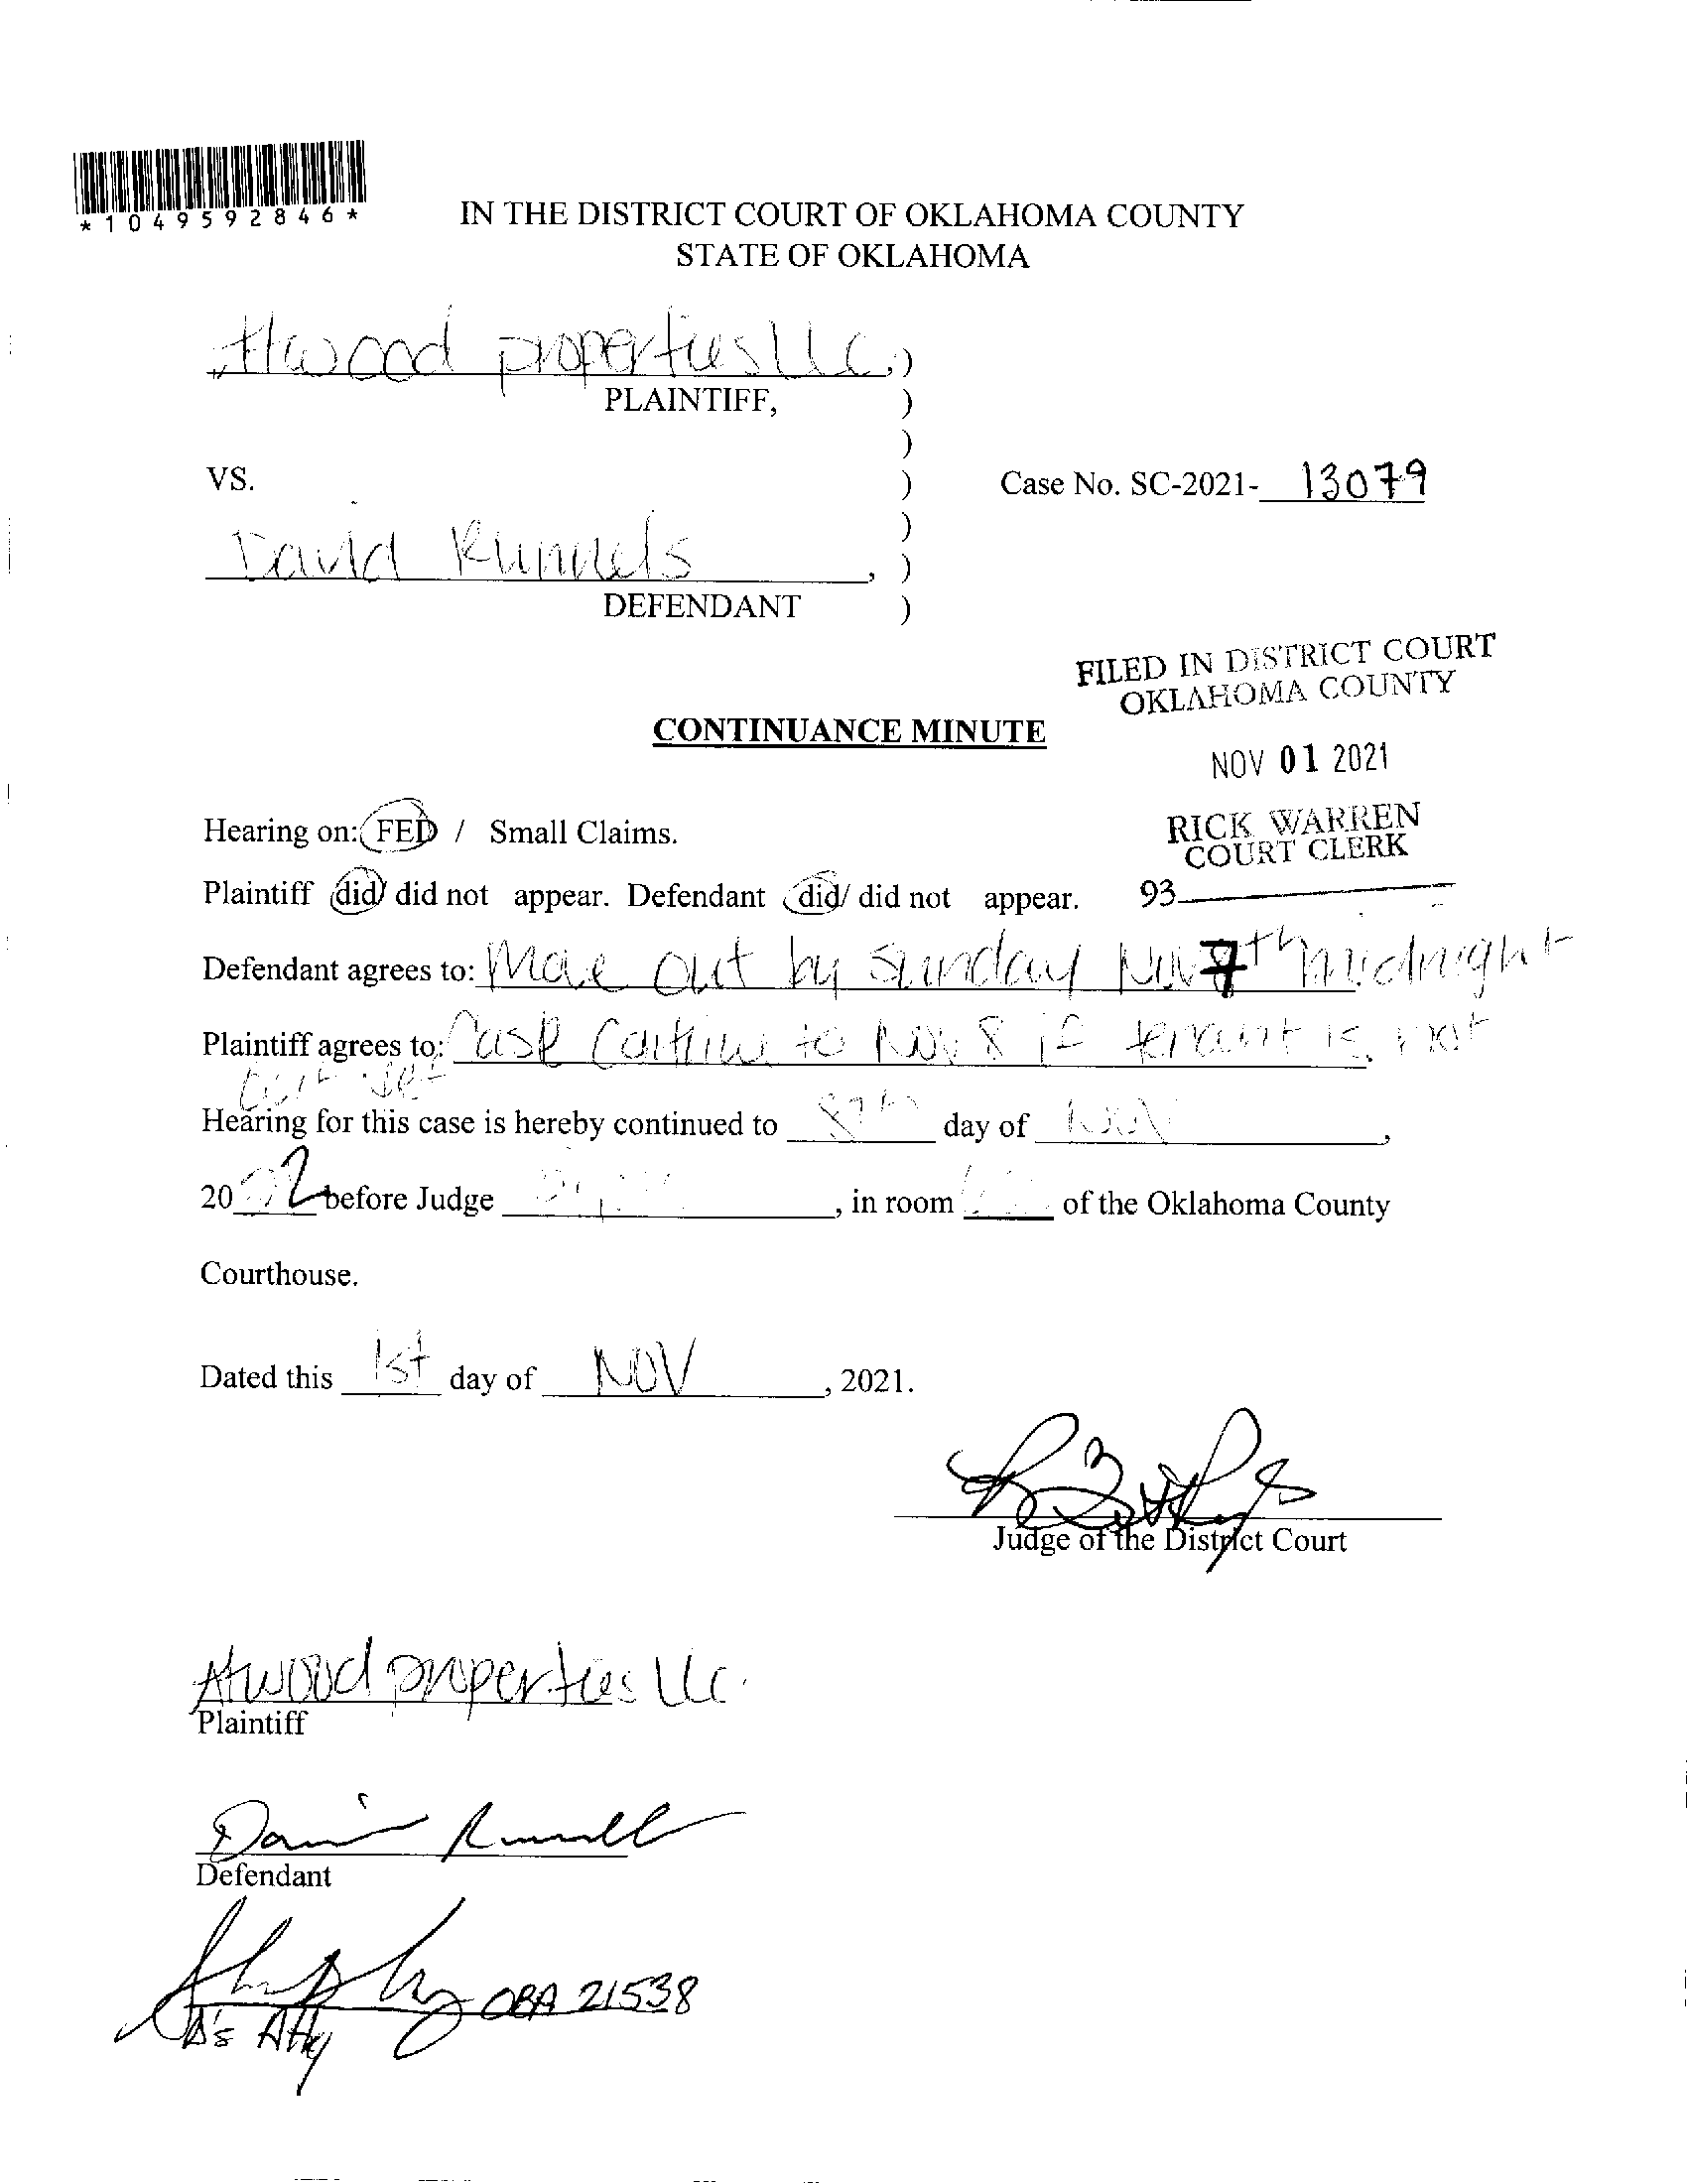 *1049592846*
IN THE DISTRICT COURT OF OKLAHOMA COUNTY
STATE OF OKLAHOMA
Atwood properties llc.)
PLAINTIFF, )
)
VS. ) Case No. SC-2021- 13079
)
David Runnels , )
DEFENDANT )
FILED IN DISTRICT COURT
OKLAHOMA COUNTY
CONTINUANCE MINUTE
NOV 01 2021
RICK WARREN
COURT CLERK
93
Hearing on: FED / Small Claims.
Plaintiff did/ did not appear. Defendant did/ did not appear.
Defendant agrees to: Move out by Sunday Nov 7th midnight
Plaintiff agrees to: Case Continue to Nov 8 if tenant is not
out
Hearing for this case is hereby continued to 8th day of Nov,
20 before Judge , in room of the Oklahoma County
Courthouse.
Dated this 1st day of NOV, 2021.
Judge of the District Court
Atwood properties llc.
Plaintiff
David Runnells
Defendant
OBA 21538
Δ's Atty